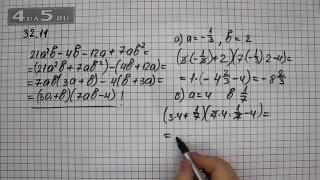 4DS.RU
32.11
21a²b - 4b - 12a + 7ab² =
= (21a²b + 7ab²) - (4b + 12a) =
= 7ab(3a + b) - 4(b + 3a) =
= (3a + b)(7ab - 4)
а) a = -1/3, b = 2
(3·(-1/3) + 2)(7·(-1/3)·2 - 4) =
= 1·(-4 2/3 - 4) = -8 2/3
б) a = 4 b 1/7
(3·4 + 1/7)(7·4·1/7 - 4) =
=